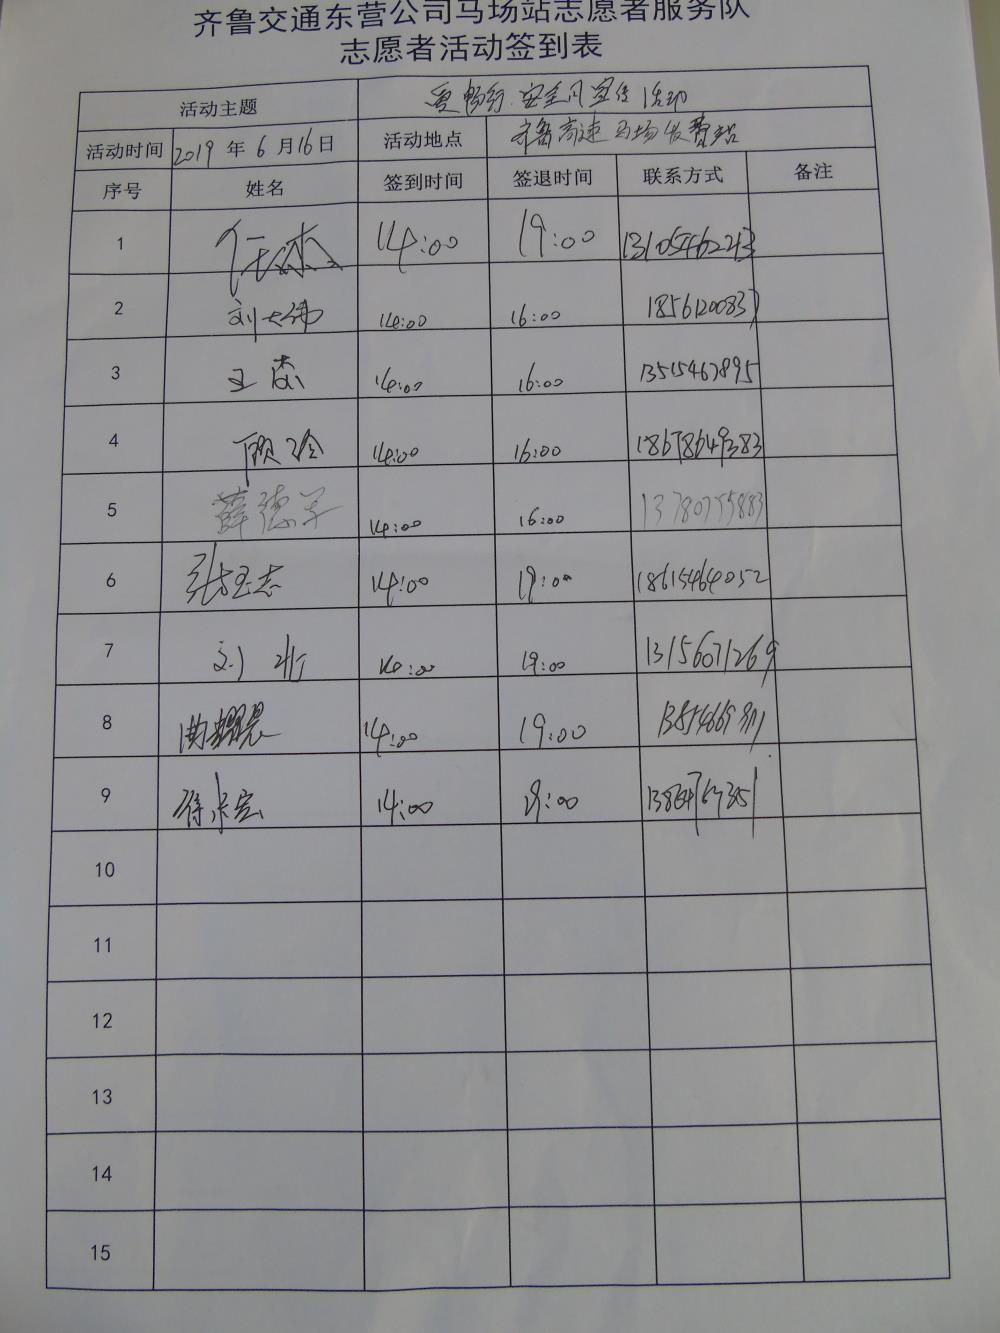 齐鲁交通东营公司马场站志愿者服务队
志愿者活动签到表
活动主题 夏畅行 安全月宣传活动
活动时间 2019年6月16日 活动地点 齐鲁高速马场收费站
序号 姓名 签到时间 签退时间 联系方式 备注
1 任杰 14:00 19:00 13105462213
2 刘大伟 14:00 16:00
3 王 14:00 16:00 13515467895
4 顾玲 14:00 16:00 18678649383
5 薛德 14:00 16:00 13780755883
6 张玉志 14:00 19:00 18615464052
7 刘 14:00 19:00 13156071269
8 曲 14:00 19:00
9 徐 14:00 19:00
10
11
12
13
14
15